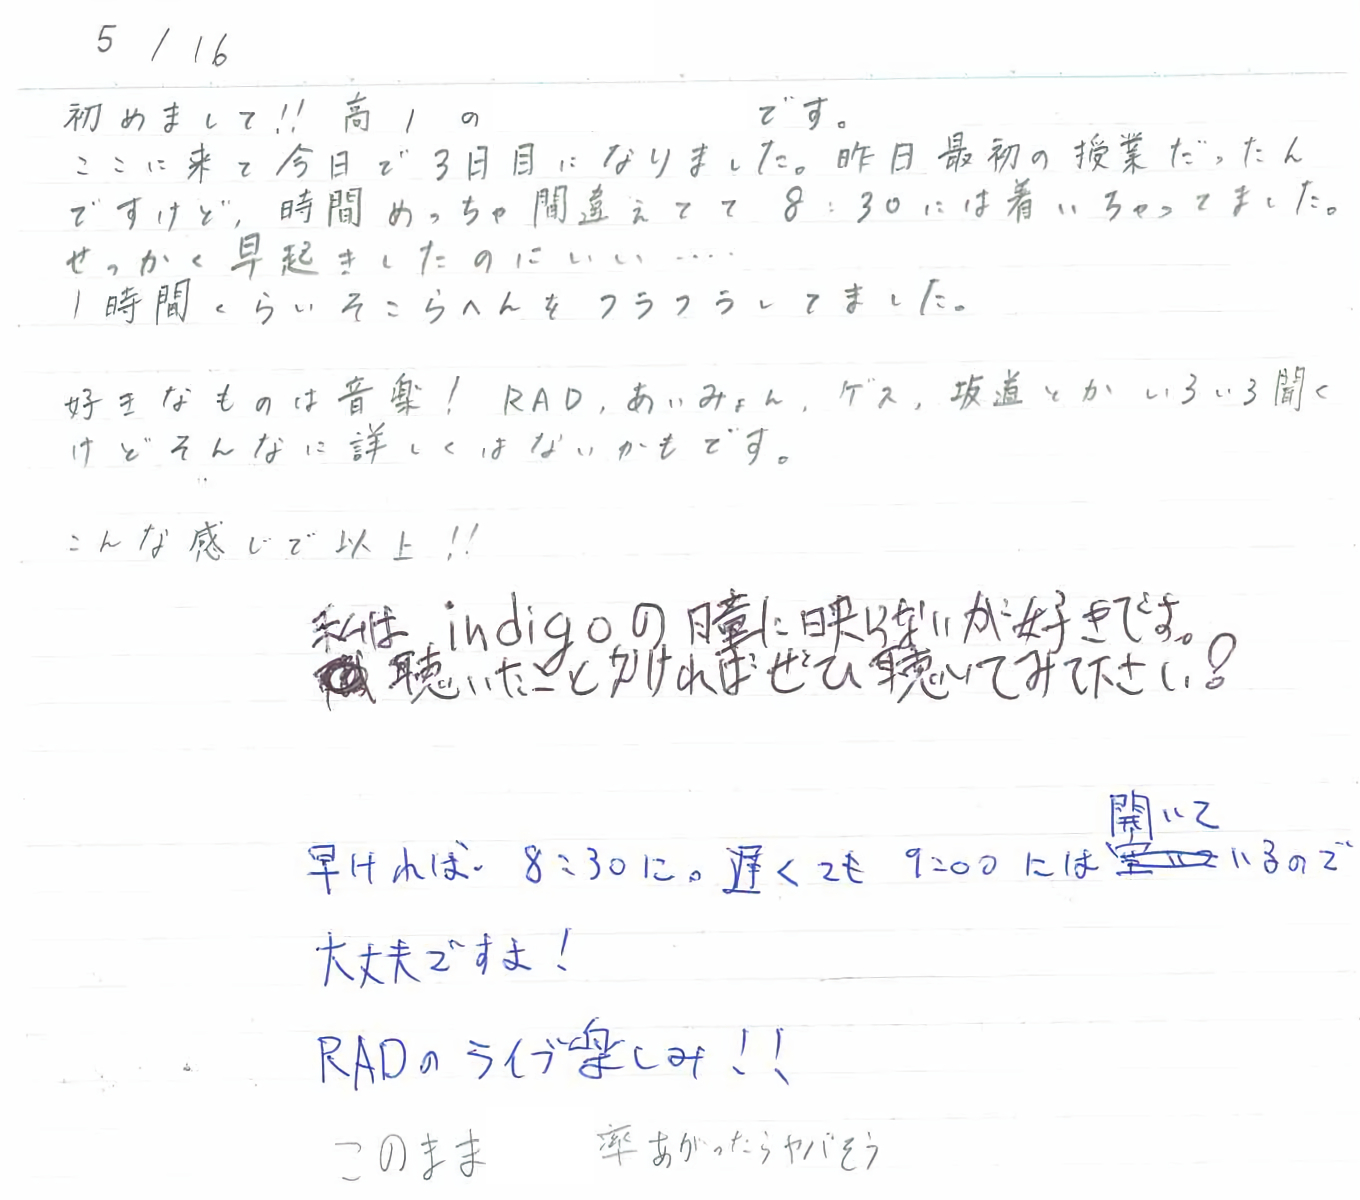 5/16
初めまして!! 高1の です。
ここに来て今日で3日目になりました。昨日最初の授業だったん
ですけど、時間めっちゃ間違えてて 8:30には着いちゃってました。
せっかく早起きしたのにいい‥‥
1時間くらいそこらへんをフラフラしてました。
好きなものは音楽! RAD, あいみょん, ゲス, 坂道とかいろいろ聞く
けどそんなに詳しくはないかもです。
こんな感じで以上!!
私は indigoの瞳に映らないが好きです。
聴いたことかければぜひ聴いてみて下さい!
早ければ 8:30に。遅くても 9:00 には開いているので
大丈夫ですよ!
RADの ライブ楽しみ!!
このまま 率あがったらヤバそう